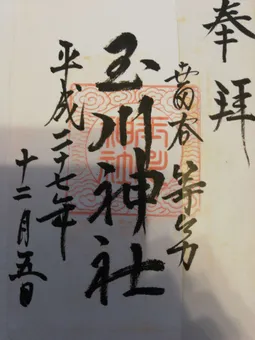 奉拝
世田谷等々力
玉川神社
平成二十七年
十二月五日